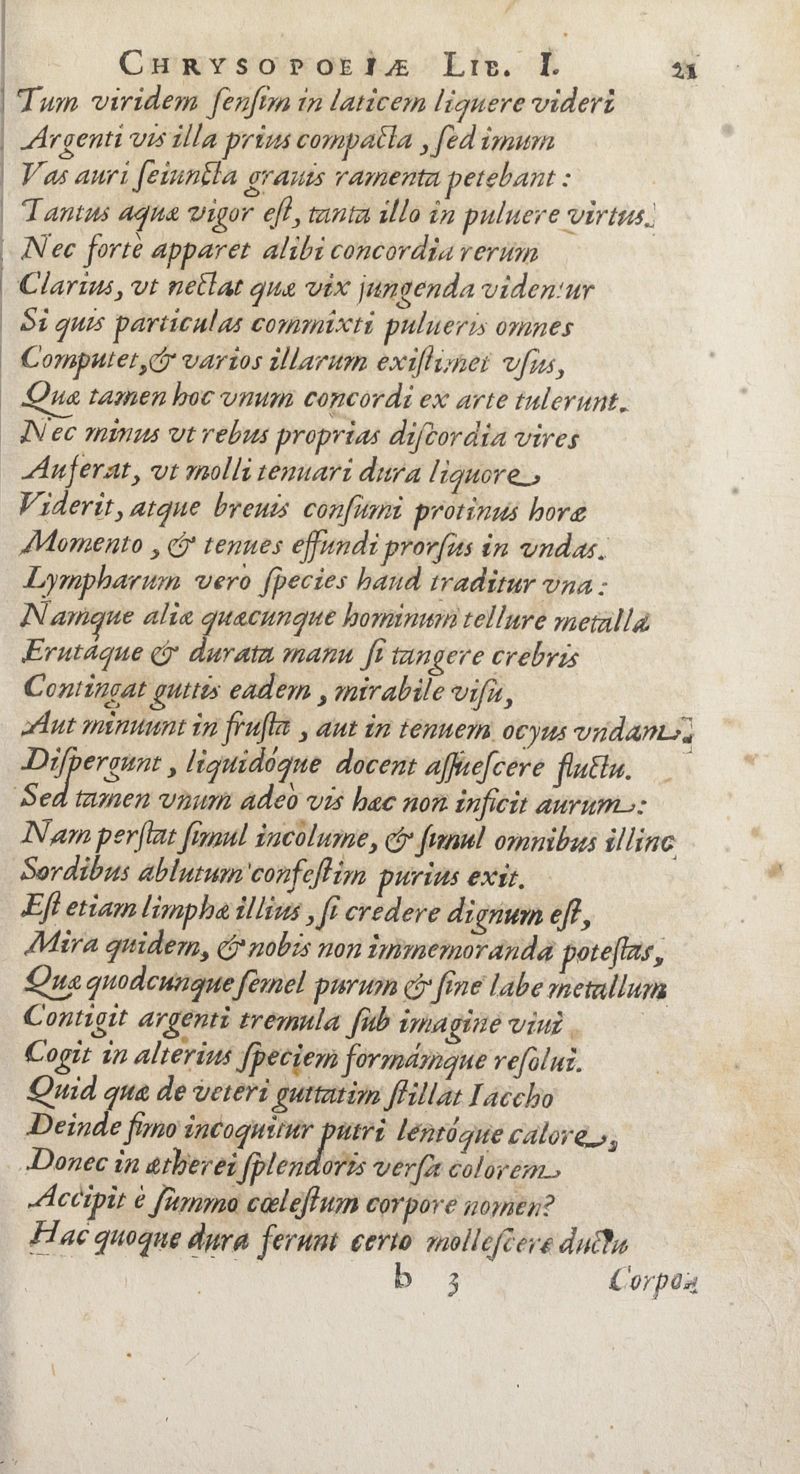 CHRYSOPOEIÆ LIB. I. 21
Tum viridem ſenſim in laticem liquere videri
Argenti vis illa prius compacta, ſed imum
Vas auri ſeiuncta grauis ramenta petebant:
Tantus aquæ vigor eſt, tanta illo in puluere virtus.
Nec fortè apparet alibi concordia rerum
Clarius, vt nectat quæ vix jungenda videntur
Si quis particulas commixti pulueris omnes
Computet, & varios illarum exiſtimet vſus,
Quæ tamen hoc vnum concordi ex arte tulerunt.
Nec minus vt rebus proprias diſcordia vires
Auferat, vt molli tenuari dura liquore
Viderit, atque breuis conſumi protinus horæ
Momento, & tenues effundi prorſus in vndas.
Lympharum verò ſpecies haud traditur vna:
Namque aliæ quæcunque hominum tellure metalla
Erutáque & durata manu ſi tangere crebris
Contingat guttis eadem, mirabile viſu,
Aut minuunt in fruſta, aut in tenuem ocyus vndam
Diſpergunt, liquidóque docent aſſueſcere fluctu.
Sed tamen vnum adeò vis hæc non inficit aurum:
Nam perſtat ſimul incolume, & ſimul omnibus illinc
Sordibus ablutum confeſtim purius exit.
Eſt etiam limphæ illius, ſi credere dignum eſt,
Mira quidem, & nobis non immemoranda poteſtas,
Quæ quodcunque ſemel purum & ſine labe metallum
Contigit argenti tremula ſub imagine viui
Cogit in alterius ſpeciem formámque reſolui.
Quid quæ de veteri guttatim ſtillat Iaccho
Deinde fimo incoquitur putri lentóque calore,
Donec in ætherei ſplendoris verſa colorem
Accipit è ſummo cœleſtum corpore nomen?
Hac quoque dura ferunt certo molleſcere ductu
b 3 Corpo-